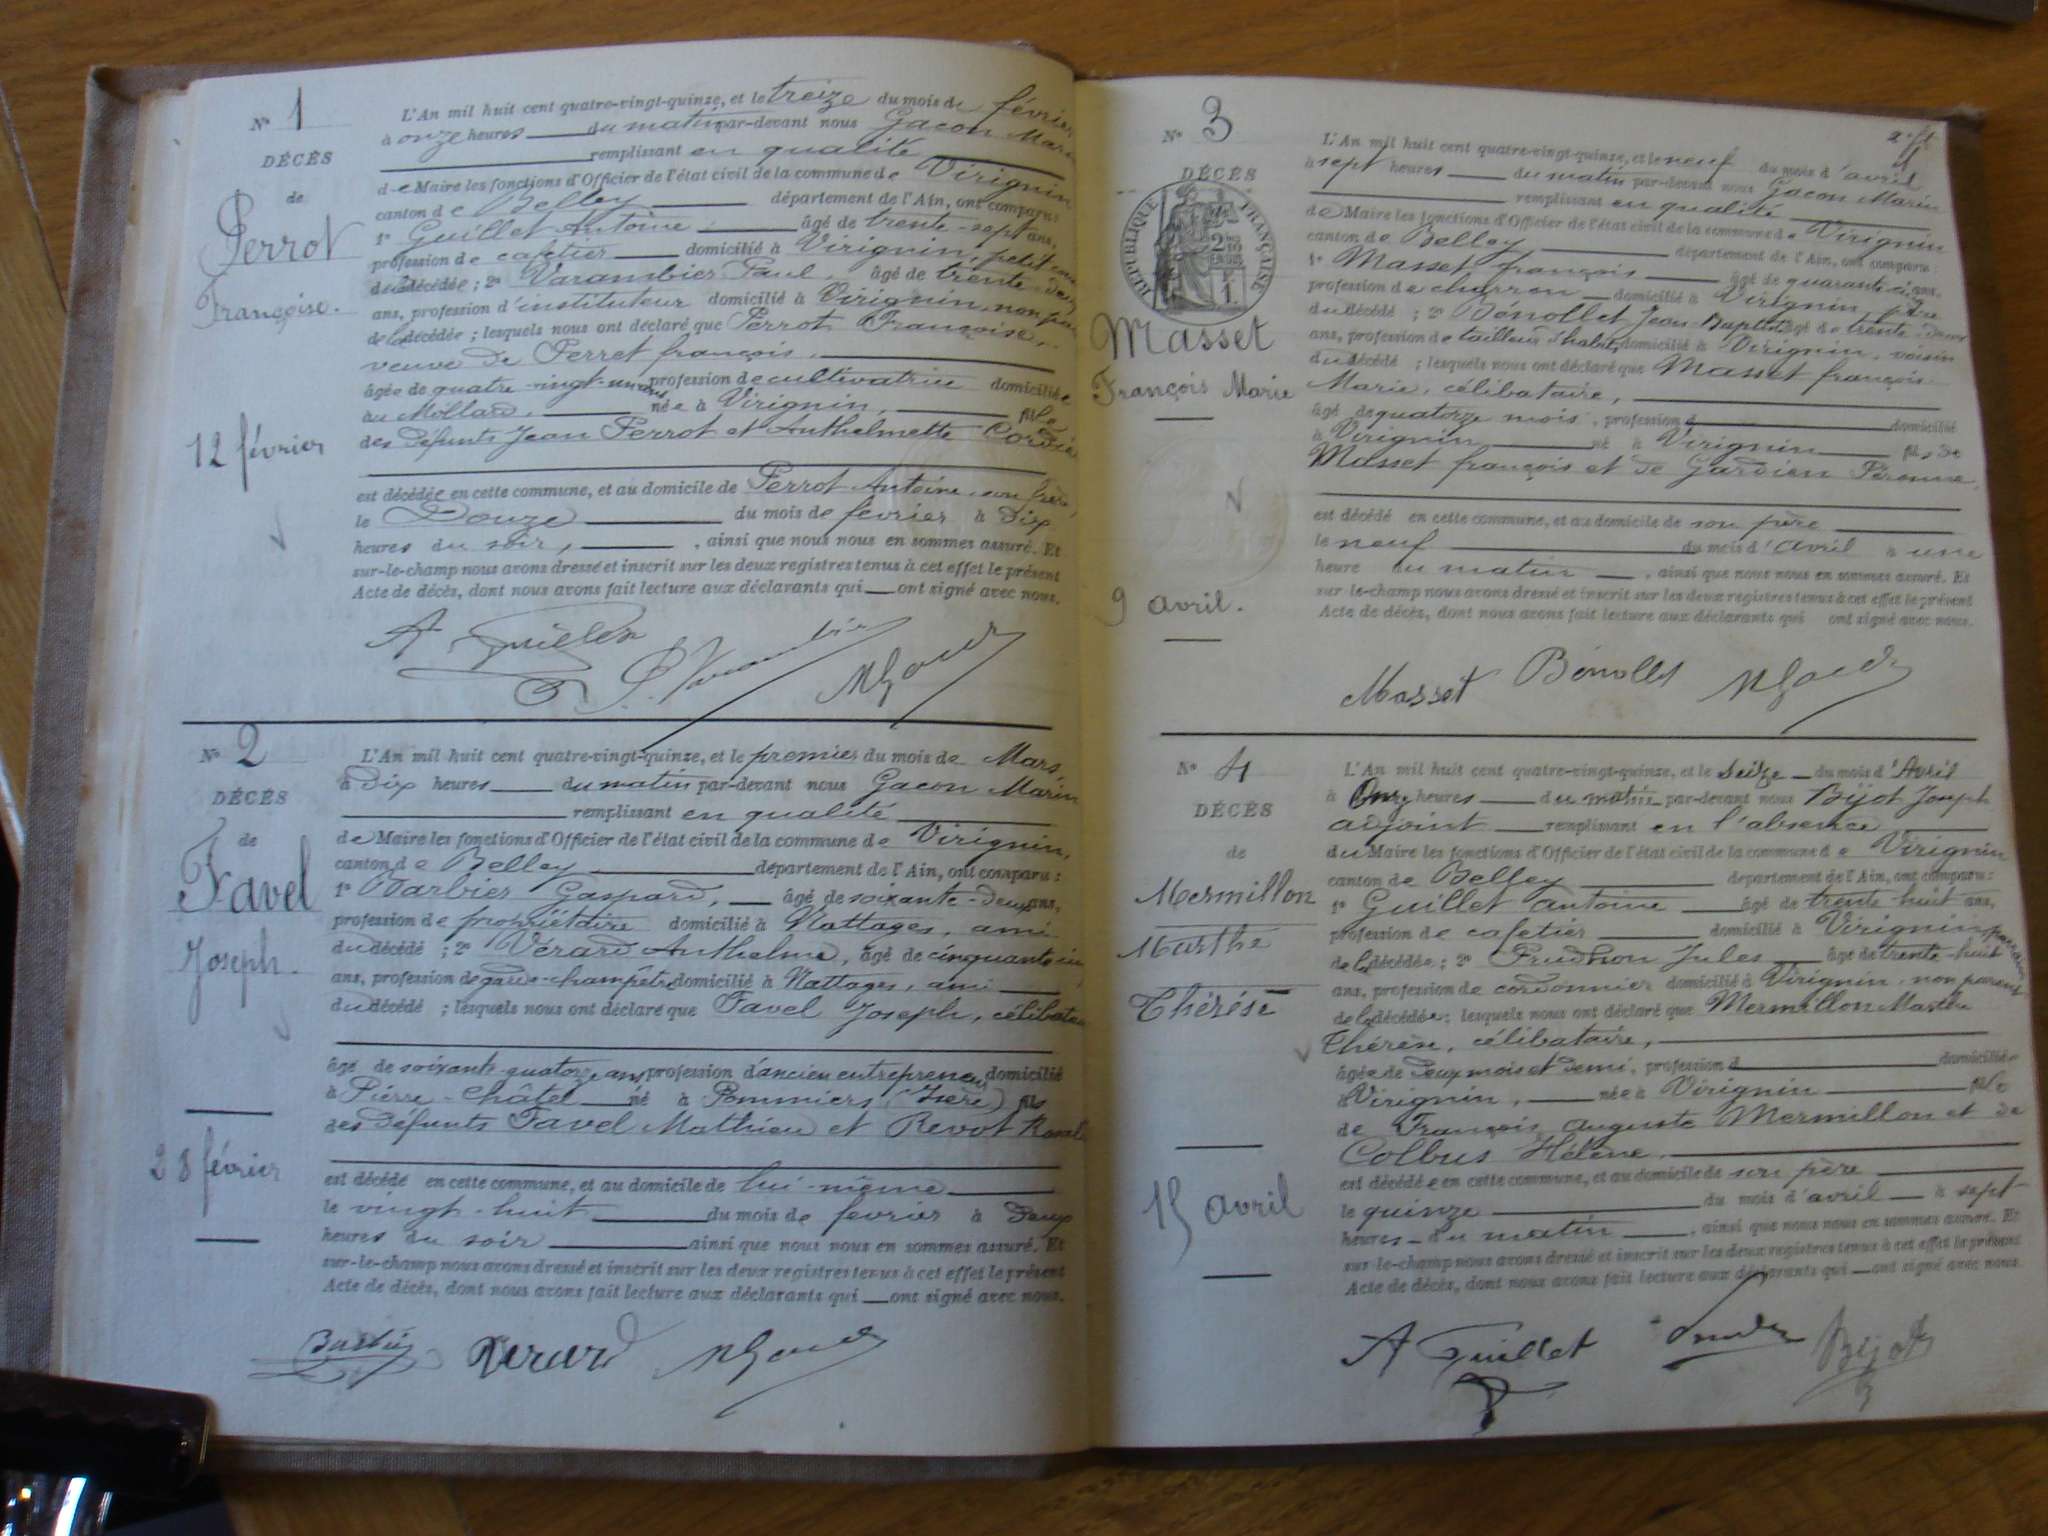 Nº 1
DÉCÈS
de
Perrot
Françoise.
12 février
L'An mil huit cent quatre-vingt-quinze, et le treize du mois de février
à onze heures du matin par-devant nous Gacon Marin
remplissant en qualité
de Maire les fonctions d'Officier de l'état civil de la commune de Virignin
canton de Belley département de l'Ain, ont comparu:
1º Guillet Antoine, âgé de trente-sept ans,
profession de cafetier domicilié à Virignin, petit
de la décédée; 2º Varambier Paul, âgé de trente-deux
ans, profession d'instituteur domicilié à Virignin, non
de la décédée; lesquels nous ont déclaré que Perrot Françoise,
veuve de Perret françois,
âgée de quatre-vingt-un ans, profession de cultivatrice domiciliée
au Mollard, née à Virignin, fille
des défunts Jean Perrot et Anthelmette
est décédée en cette commune, et au domicile de Perrot Antoine, son frère,
le Douze du mois de février à dix
heures du soir, ainsi que nous nous en sommes assuré. Et
sur-le-champ nous avons dressé et inscrit sur les deux registres tenus à cet effet le présent
Acte de décès, dont nous avons fait lecture aux déclarants qui ont signé avec nous.
A Guillet
Nº 2
DÉCÈS
de
Favel
Joseph.
28 février
L'An mil huit cent quatre-vingt-quinze, et le premier du mois de Mars,
à Dix heures du matin par-devant nous Gacon Marin
remplissant en qualité
de Maire les fonctions d'Officier de l'état civil de la commune de Virignin,
canton de Belley département de l'Ain, ont comparu:
1º Barbier Gaspard, âgé de soixante-deux ans,
profession de propriétaire domicilié à Nattages, ami
du décédé; 2º Vérard Anthelme, âgé de cinquante
ans, profession de garde-champêtre domicilié à Nattages, ami
du décédé; lesquels nous ont déclaré que Favel Joseph, célibataire
âgé de soixante quatorze ans, profession d'ancien entrepreneur domicilié
à Pierre-Châtel né à Pommiers, (Isère) fils
des défunts Favel Mathieu et Revot
est décédé en cette commune, et au domicile de lui-même
le vingt-huit du mois de fevrier à Deux
heures du soir ainsi que nous nous en sommes assuré. Et
sur-le-champ nous avons dressé et inscrit sur les deux registres tenus à cet effet le présent
Acte de décès, dont nous avons fait lecture aux déclarants qui ont signé avec nous.
Verard
Nº 3
DÉCÈS
RÉPUBLIQUE FRANÇAISE
Masset
François Marie
9 avril.
L'An mil huit cent quatre-vingt-quinze, et le neuf du mois d'avril
à sept heures du matin par-devant nous Gacon Marin
remplissant en qualité
de Maire les fonctions d'Officier de l'état civil de la commune de Virignin
canton de Belley département de l'Ain, ont comparu:
1º Masset françois âgé de quarante cinq ans,
profession de charron domicilié à Virignin, père
du décédé; 2º Bénollet Jean-Baptiste âgé de trente-deux
ans, profession de tailleur d'habits, domicilié à Virignin, voisin
du décédé; lesquels nous ont déclaré que Masset françois
Marie, célibataire,
âgé de quatorze mois, profession d domicilié
à Virignin né à Virignin fils de
Masset françois et de Gardien Péronne,
est décédé en cette commune, et au domicile de son père
le neuf du mois d'avril à une
heure du matin, ainsi que nous nous en sommes assuré. Et
sur-le-champ nous avons dressé et inscrit sur les deux registres tenus à cet effet le présent
Acte de décès, dont nous avons fait lecture aux déclarants qui ont signé avec nous.
Masset Bénollet
Nº 4
DÉCÈS
de
Mermillon
Marthe
Thérèse
15 avril
L'An mil huit cent quatre-vingt-quinze, et le Seize du mois d'Avril
à Onze heures du matin par-devant nous Bijot Joseph
adjoint remplissant en l'absence
du Maire les fonctions d'Officier de l'état civil de la commune de Virignin
canton de Belley département de l'Ain, ont comparu:
1º Guillet antoine âgé de trente-huit ans,
profession de cafetier domicilié à Virignin
de la décédée; 2º Prudhon Jules âgé de trente-huit
ans, profession de cordonnier domicilié à Virignin, non parent
de la décédée; lesquels nous ont déclaré que Mermillon Marthe
Thérèse, célibataire,
âgée de Deux mois et demi, profession d domiciliée
à Virignin, née à Virignin fille
de François auguste Mermillon et de
Colbus Hélène,
est décédée en cette commune, et au domicile de son père
le quinze du mois d'avril à sept
heures du matin, ainsi que nous nous en sommes assuré. Et
sur-le-champ nous avons dressé et inscrit sur les deux registres tenus à cet effet le présent
Acte de décès, dont nous avons fait lecture aux déclarants qui ont signé avec nous.
A Guillet Bijot